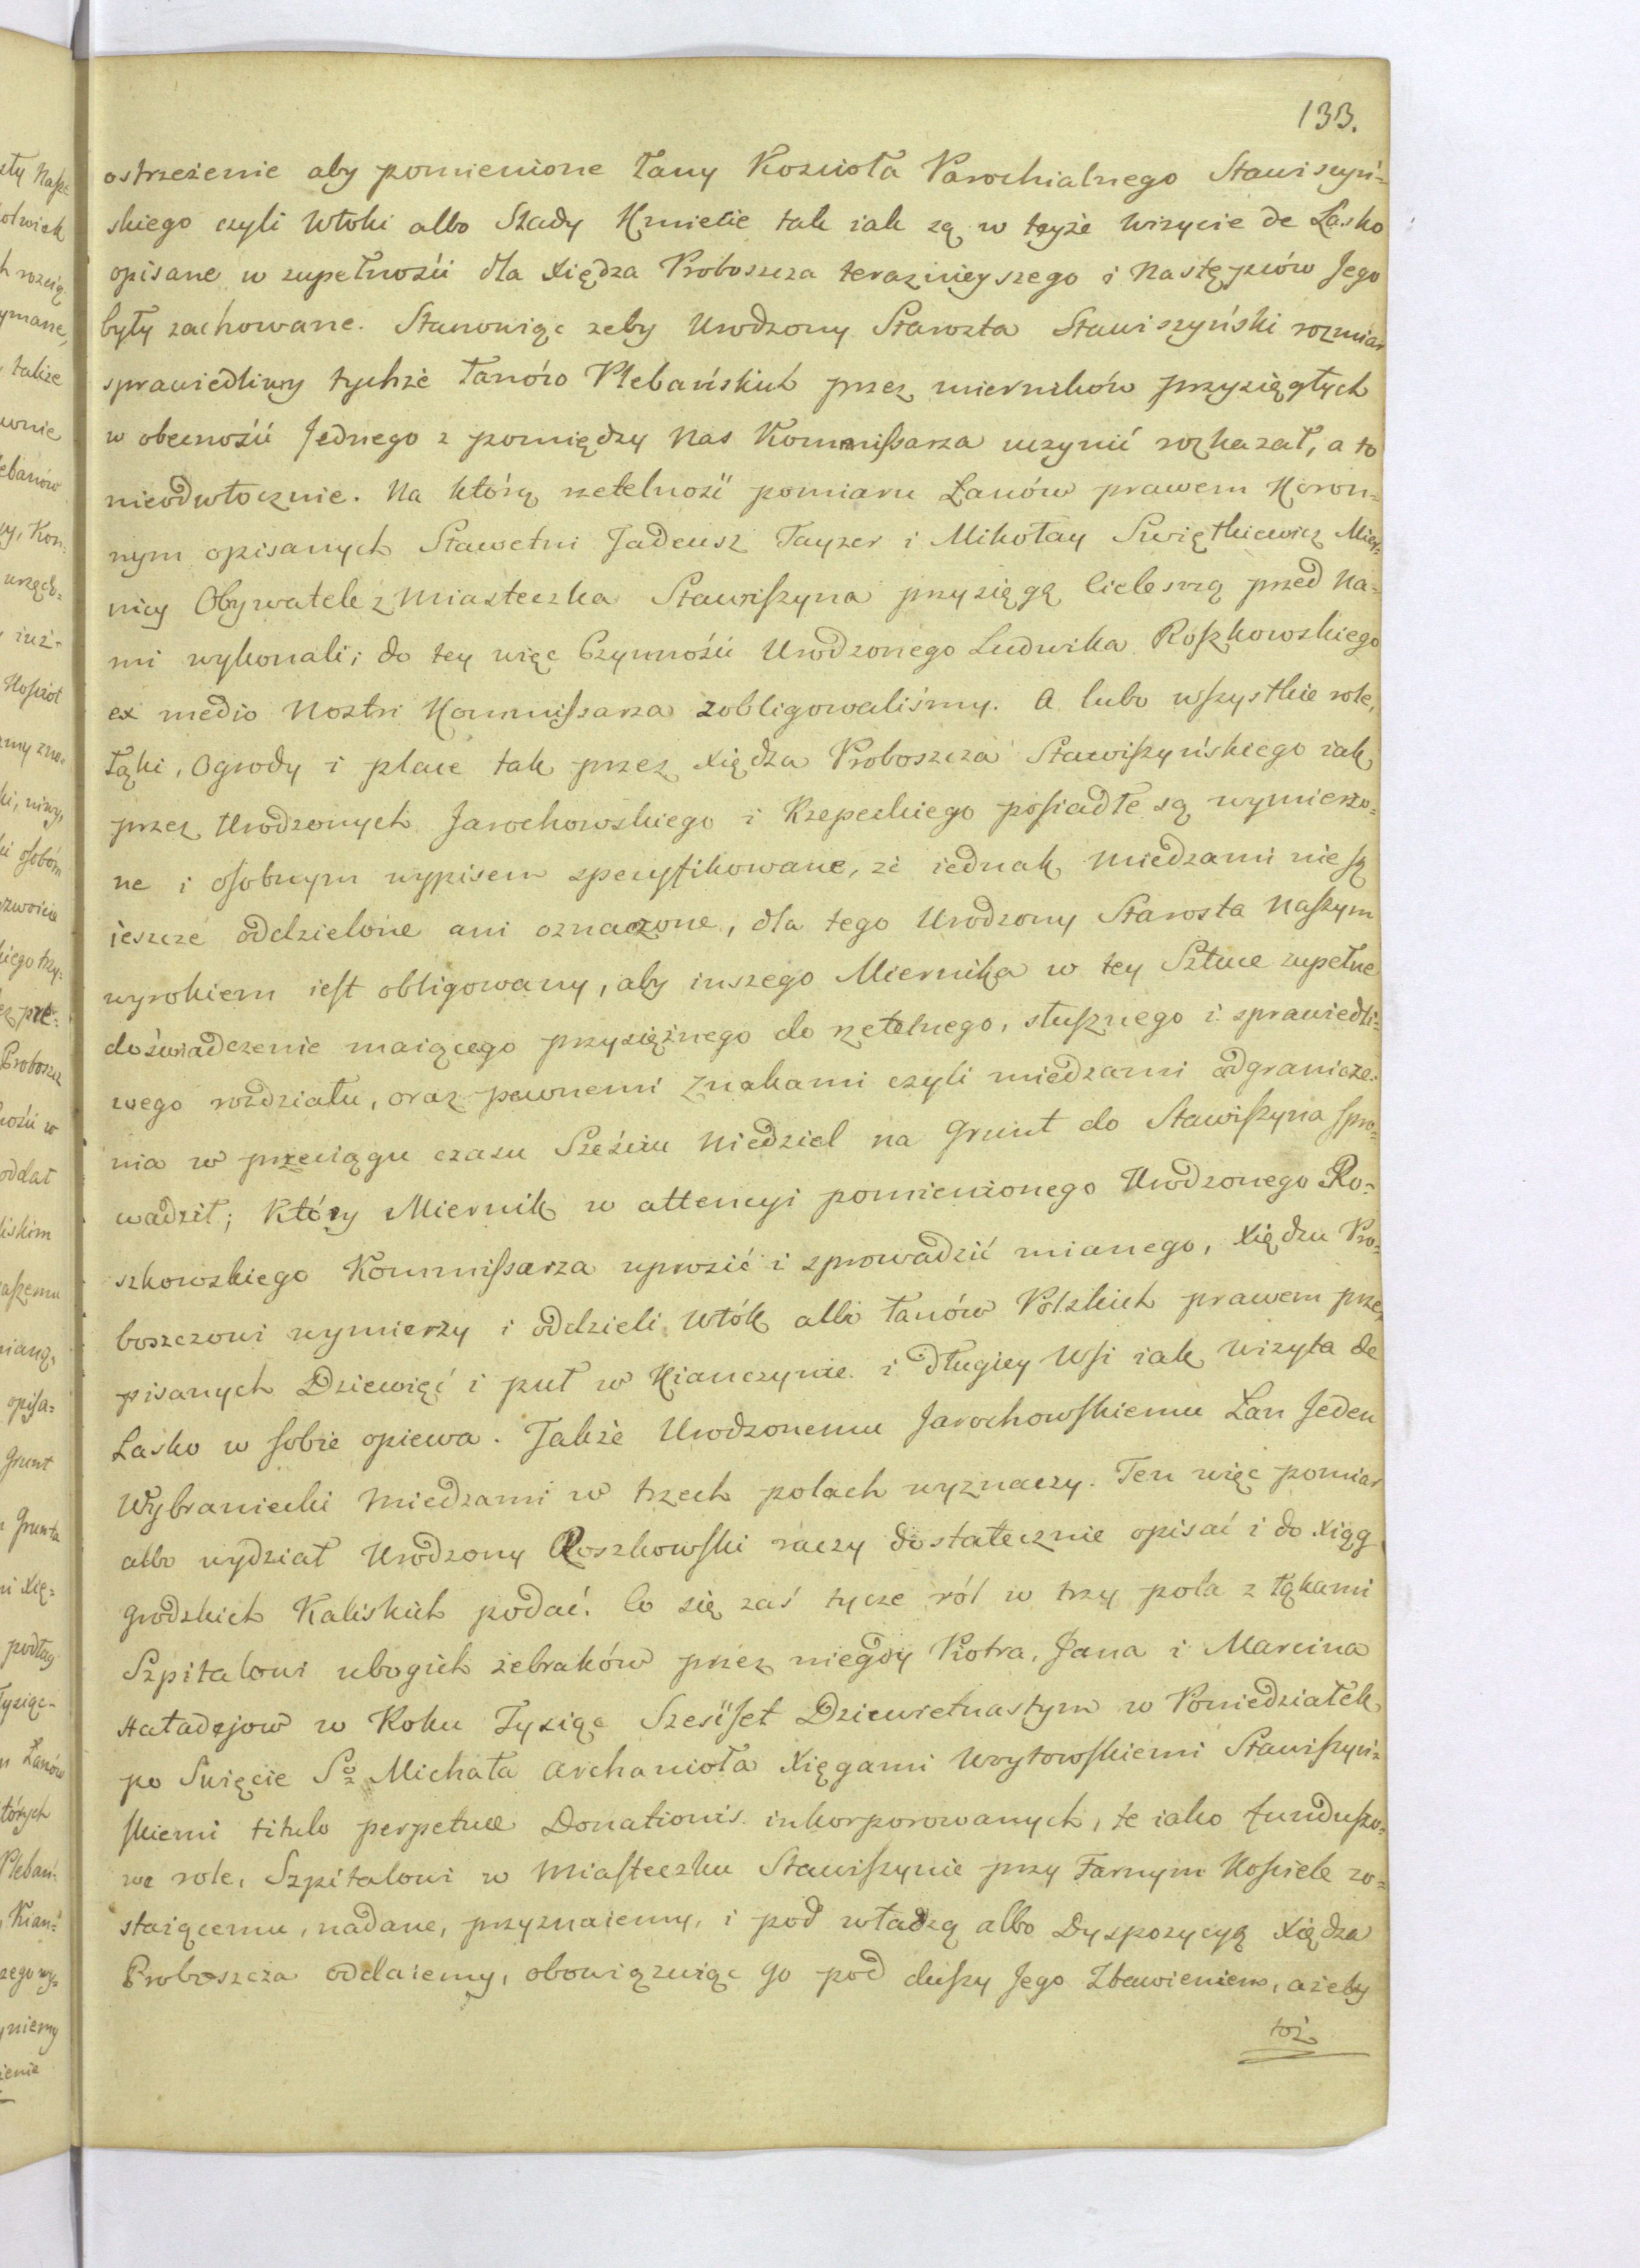 133.
ostrzeżenie aby pomienione Łany Koscioła Parochialnego Stawiszyń=
skiego czyli Włoki albo Szlady Kmiecie tak iak są w teyże Wizycie de Lasko
opisane w zupełności dla Xiędza Proboszcza teraznieyszego i Następców Jego
były zachowane. Stanowiąc zeby Urodzony Starosta Stawiszyński rozmiar
sprawiedliwy tychże Łanów Plebańskich przez mierników przysięgłych
w obecności Jednego z pomiędzy Nas Kommissarza uczynić rozkazał, a to
nieodwłocznie. Na którą rzetelność pomiaru Łanów prawem Koron=
nym opisanych Sławetni Jadeusz Tayzer i Mikołay Swiętkiewicz Mier=
nicy Obywatele z Miasteczka Stawiszyna przysięgę Cielesną przed Na=
mi wykonali; do tey więc Czynności Urodzonego Ludwika Roszkowskiego
ex medio Nostri Kommissarza zobligowaliśmy. A lubo wszystkie role,
Łąki, Ogrody i place tak przez Xiędza Proboszcza Stawiszyńskiego iak
przez Urodzonych Jarochowskiego i Rzepeckiego posiadłe są wymierzo=
ne i osobnym wypisem specyfikowane, że iednak miedzami nie są
ieszcze oddzielone ani oznaczone, dla tego Urodzony Starosta Naszym
wyrokiem iest obligowany, aby inszego Miernika w tey Sztuce zupełne
doświadczenie maiącego przysiężnego do rzetelnego, słusznego i sprawiedli=
wego rozdziału, oraz pewnemi Znakami czyli miedzami odgranicze=
nia w przeciągu czasu Sześciu Niedziel na Grunt do Stawiszyna spro=
wadził; Który Miernik w attencyi pomienionego Urodzonego Ro=
szkowskiego Kommissarza uprosić i sprowadzić mianego, Xiędzu Pro=
boszczowi wymierzy i oddzieli Włók albo Łanów Polskich prawem prze
pisanych Dziewięć i puł w Kianczynie i Długiey Wsi iak Wizyta de
Lasko w sobie opiewa. Jakże Urodzonemu Jarochowskiemu Łan Jeden
Wybraniecki Miedzami w trzech polach wyznaczy. Ten więc pomiar
albo wydział Urodzony Roszkowski raczy dostatecznie opisać i do Xiąg
Grodzkich Kaliskich podać. Co się zaś tycze ról w trzy pola z łąkami
Szpitalowi ubogich żebraków przez niegdy Piotra, Jana i Marcina
Hatadejow w Roku Tysiąc Sześćset Dziewietnastym w Poniedziałek
po Swięcie Sgo Michała Archanioła Xięgami Woytowskiemi Stawiszyń=
skiemi titulo perpetuæ Donationis inkorporowanych, te iako funduszo=
we role, Szpitalowi w Miasteczku Stawiszynie przy Farnym Kościele zo=
staiącemu, nadane, przyznaiemy, i pod władzą albo Dyspozycyą Xiędza
Proboszcza oddaiemy, obowiązuiąc Go pod duszy Jego Zbawieniem, ażeby
toż